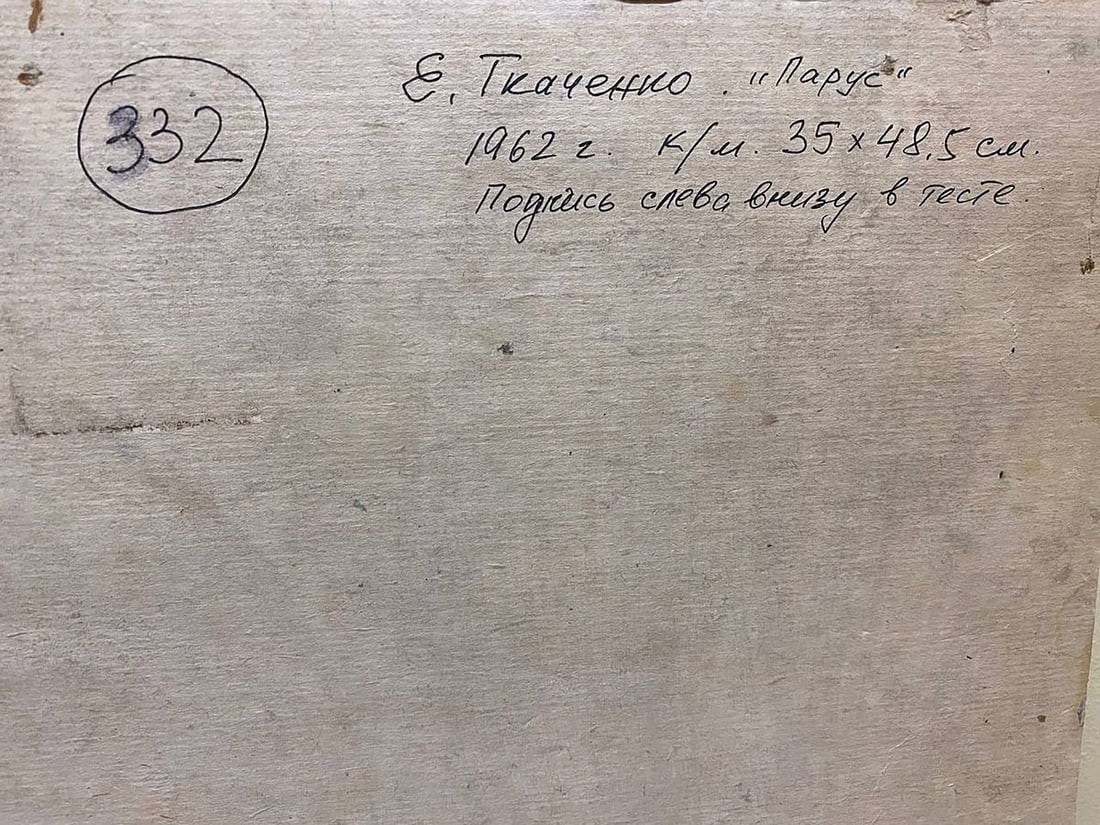 332
Е. Ткаченко. "Парус"
1962 г. к/м. 35 x 48,5 см.
Подпись слева внизу в тесте.